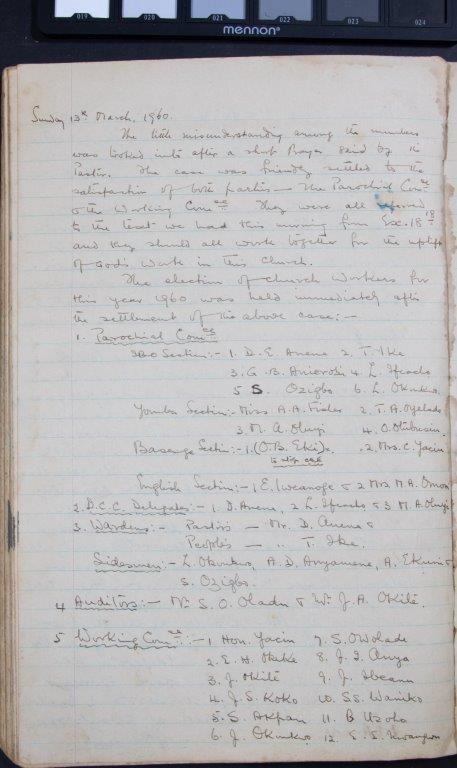 019 020 021 022 023 024
mennon
Sunday 13th March, 1960.
The little misunderstanding among the members
was looked into after a short Prayer said by the
Pastor. The case was friendly settled to the
satisfaction of both parties — The Parochial Com.ee
& the Working Com.ee They were all referred
to the text we had this morning from Ex. 18
and they should all work together for the uplift
of God's Work in this Church.
The election of Church Workers for
this year 1960 was held immediately after
the settlement of the above case:—
1. Parochial Com.ee
Section:— 1. D. E. Anene 2. T. Ike
3. G. B. 4. L.
5 S. Ozigbo 6. L. Okonkwo
Yoruba Section:— Miss A. A. 2. T. A. Oyelade
3. M. A. Oluyi 4. O.
Section:— 1. (O. B. Eki) 2. Mrs. C. Yacin
English Section:— 1 E. Iweanoge & 2 Mrs M. A.
2. D.C.C. Delegates:— 1. D. Anene, 2 L. & 3 M. A. Oluyi
3. Wardens:— Pastor's — Mr. D. Anene &
People's — " T. Ike.
Sidesmen:— L. Okonkwo, A. D. Anyamene, A. &
S. Ozigbo.
4 Auditors:— Mr S. O. Oladu & Mr J. A. Okité.
5 Working Com.ee:— 1 Hon. Yacin 7. S. Owolade
2. E. H. Okeke 8. J. I. Anya
3. J. Okité 9. J. Ibeanu
4. J. S. Koko 10. S.S. Wariko
5. S. Akpan 11. B Uzoho
6. J. Okonkwo 12. E. S.